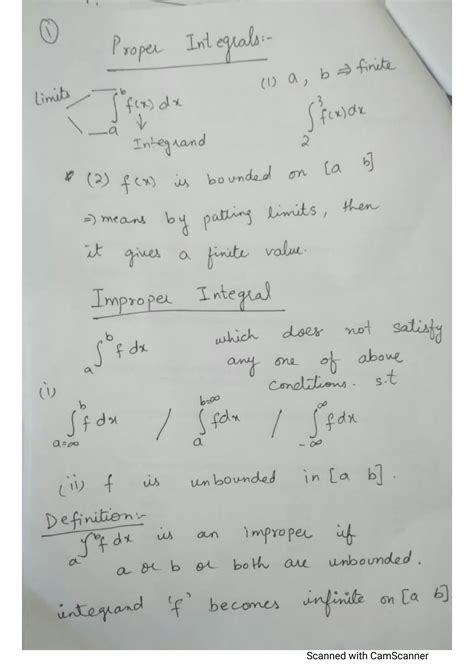 ①
Proper Integrals:-
(1) a, b ⇒ finite
limits ∫_a^b f(x) dx
↓
Integrand
∫_2^3 f(x) dx
(2) f(x) is bounded on [a b]
⇒ means by putting limits, then
it gives a finite value.
Improper Integral
∫_a^b f dx which does not satisfy
any one of above
conditions. s.t
(i)
∫_{a=∞}^b f dx / ∫_a^{b=∞} f dx / ∫_{-∞}^∞ f dx
(ii) f is unbounded in [a b].
Definition:-
∫_a^b f dx is an improper if
a or b or both are unbounded.
integrand 'f' becomes infinite on [a b]
Scanned with CamScanner